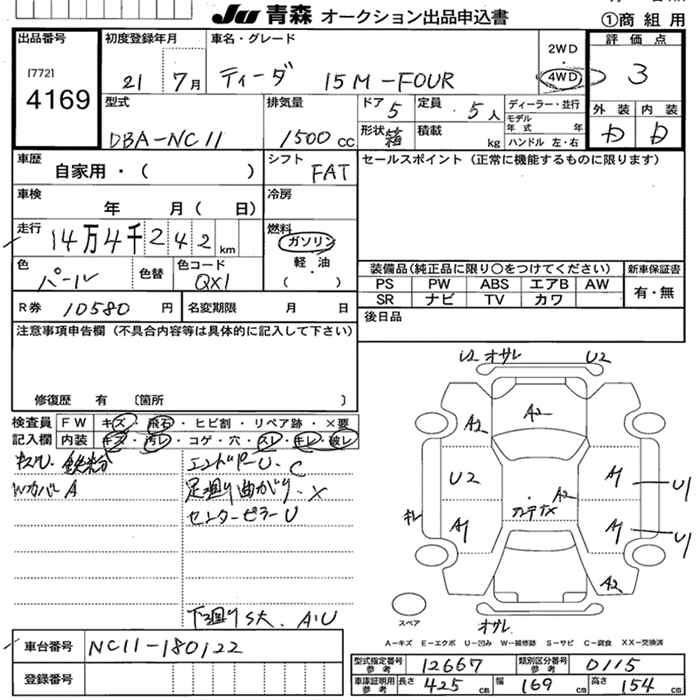 JU 青森 オークション出品申込書
①商組用
出品番号
[772]
4169
初度登録年月
21 7月
車名・グレード
ティーダ 15M-FOUR
2WD
・
4WD
評価点
3
型式
DBA-NC11
排気量
1500 cc
ドア 5
定員 5人
形状 箱
積載 kg
ディーラー・並行
モデル年式 年
ハンドル 左・右
外装
内装
D
D
車歴
自家用・( )
シフト
FAT
セールスポイント(正常に機能するものに限ります)
車検
年 月( 日)
冷房
走行
14万4千242km
燃料
ガソリン
軽油
・
( )
色
パール
色替
色コード
QX1
装備品(純正品に限り○をつけてください)
PS PW ABS エアB AW
SR ナビ TV カワ
新車保証書
有・無
R券 10580円
名変期限 月 日
後日品
注意事項申告欄(不具合内容等は具体的に記入して下さい)
修復歴 有 〔箇所 〕
検査員
記入欄
FW キズ・飛石・ヒビ割・リペア跡・×要
内装 キズ・汚レ・コゲ・穴・スレ・キレ・破レ
鉄粉
WカバーA
エンドPU、C
足廻り曲がり、X
センターピラーU
下廻りS大、A・U
U2 オサレ U2
A2
A2
U2
A1
U1
キレ
A1
A2
カーテナメ
A1
U1
A2
オサレ
スペア
A-キズ E-エクボ U-凹み W-補修跡 S-サビ C-腐食 XX-交換済
車台番号
NC11-180122
登録番号
型式指定番号 参考 12667
類別区分番号 参考 0115
車庫証明用 参考 長さ 425cm 幅 169cm 高さ 154cm